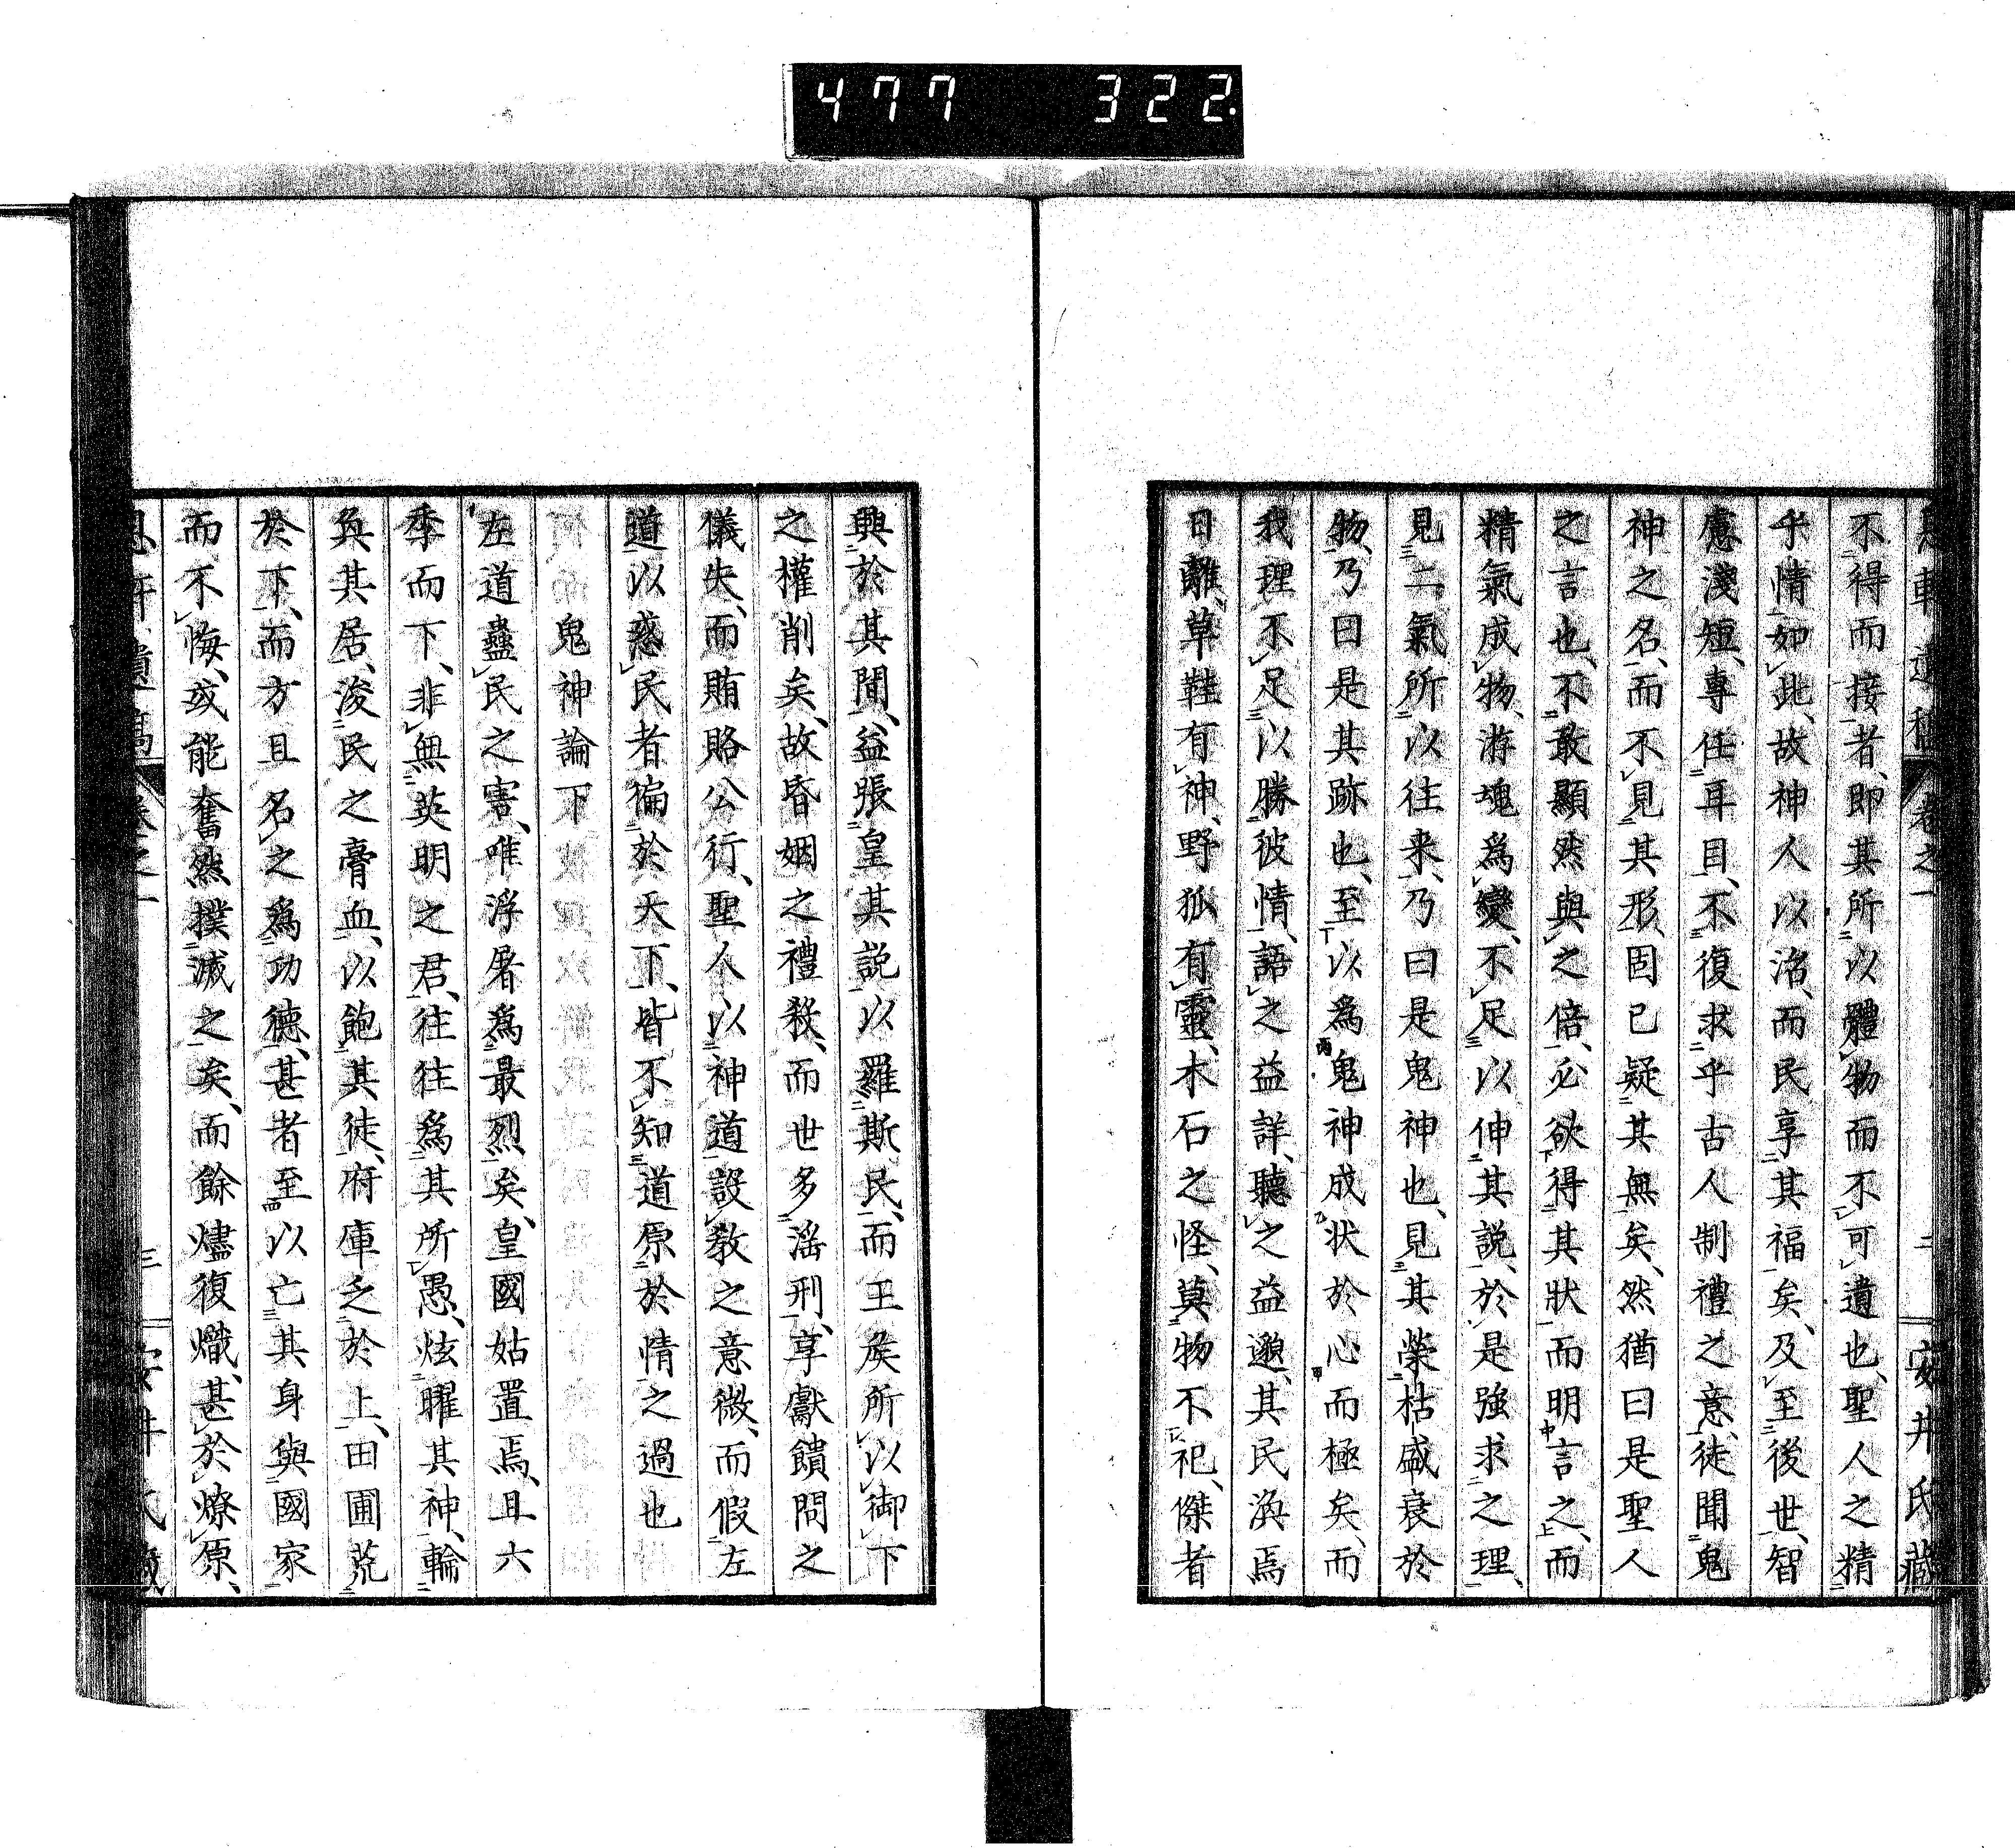 477 322
息軒遺稿 卷之一 二 安井氏藏
不得而接者、即其所以體物而不可遺也、聖人之精
乎情如此、故神人以洽、而民享其福矣、及至後世、智
慮淺短、專任耳目、不復求乎古人制禮之意、徒聞鬼
神之名、而不見其形、固已疑其無矣、然猶曰是聖人
之言也、不敢顯然與之倍、必欲得其狀而明言之、而
精氣成物、游魂爲變、不足以伸其說、於是強求之理、
見二氣所以往来、乃曰是鬼神也、見其榮枯盛衰於
物、乃曰是其跡也、至以爲鬼神成状於心而極矣、而
我理不足以勝彼情、語之益詳、聽之益邈、其民渙焉
日離、草鞋有神、野狐有靈、木石之怪、莫物不祀、傑者
興於其間、益張皇其説以羅斯民、而王矦所以御下
之權削矣、故昏姻之禮殺、而世多滛刑、享獻饋問之
儀失、而賄賂公行、聖人以神道設教之意微、而假左
道以惑民者徧於天下、皆不知道原於情之過也
鬼神論下
左道蠱民之害、唯浮屠爲最烈矣、皇國姑置焉、且六
季而下、非無英明之君、往往爲其所愚、炫曜其神、輪
奐其居、浚民之膏血、以飽其徒、府庫乏於上、田圃荒
於下、而方且名之爲功德、甚者至以亡其身與國家
而不悔、或能奮然撲滅之矣、而餘燼復熾、甚於燎原、
息軒遺稿 卷之一 三 安井氏藏